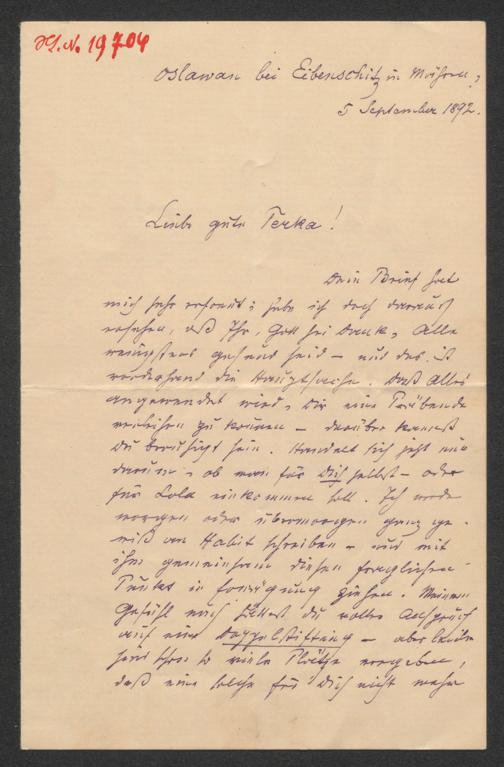 H.I.N. 19704
Oslawan bei Eibenschitz in Mähren,
5 September 1892.
Liebe gute Terka!
Dein Brief hat
mich sehr erfreut; habe ich doch daraus
ersehen, daß Ihr, Gott sei Dank, Alle
wenigstens gesund seid – und das ist
vorderhand die Hauptsache. Daß Alles
angewendet wird, Dir eine
zu können – darüber kannst
Du beruhigt sein. Handelt sich jetzt nur
darum, ob man für Dich selbst – oder
für Lola einkommen soll. Ich werde
morgen oder übermorgen ganz ge-
wiß an Habit schreiben – und mit
ihm gemeinsam diesen fraglichen
Punkt in Erwägung ziehen. Meinem
Gefühl nach hättest Du vollen Anspruch
auf eine Doppelstiftung – aber leider
sind schon so viele Plätze vergeben,
daß eine solche für Dich nicht mehr